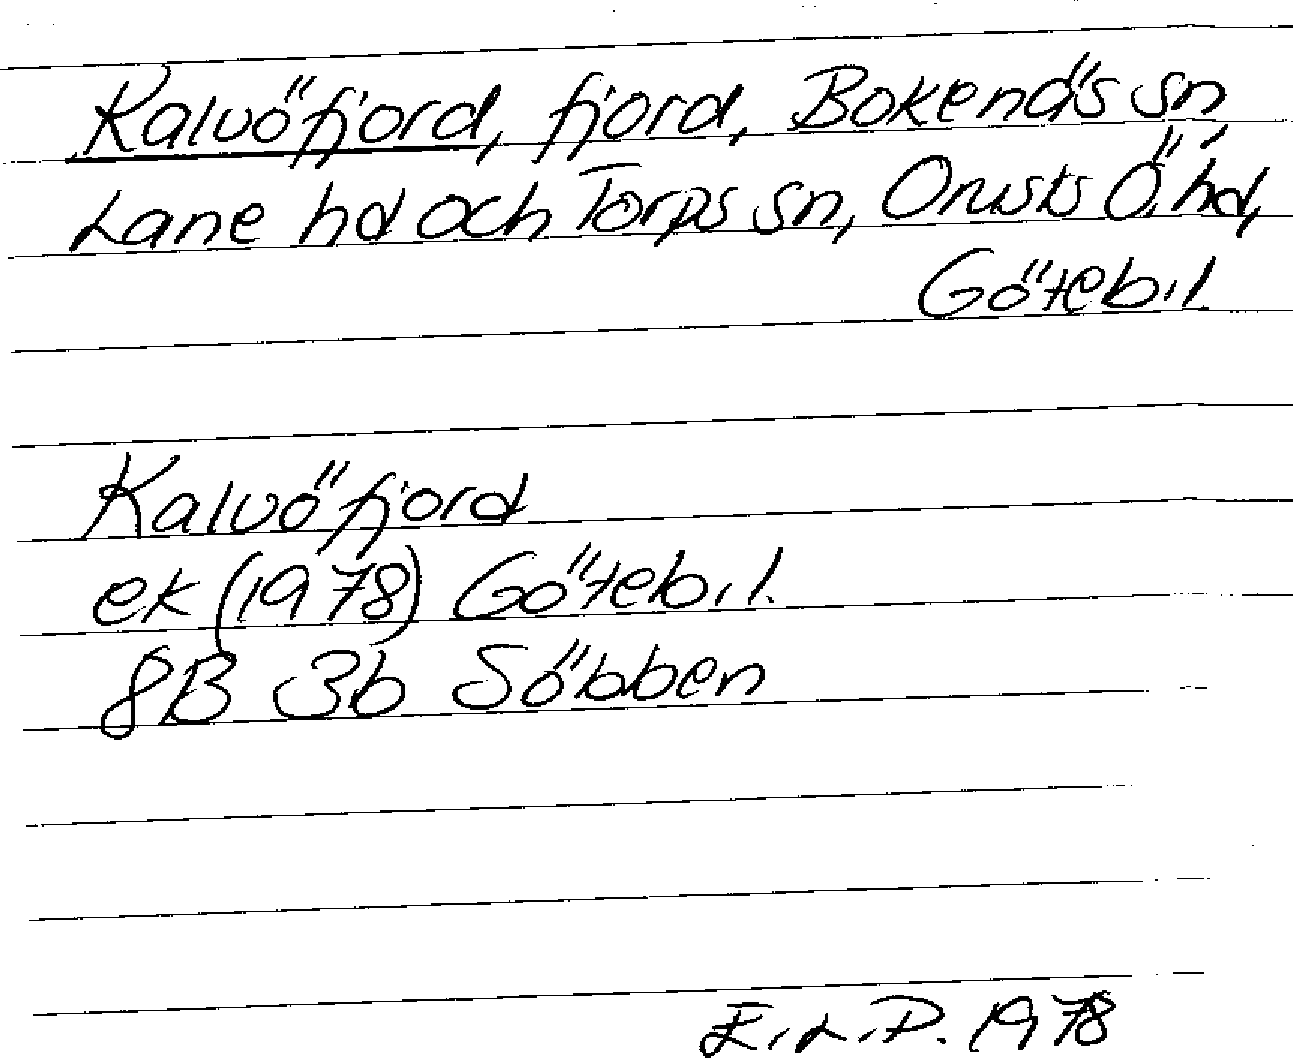 Kalvöfjord, fjord, Bokenäs sn,
Lane hd och Torps sn, Orusts Ö. hd,
Göteb. l
Kalvöfjord
ek (1978) Göteb. l.
8B 3b Söbben
E. L. P. 1978